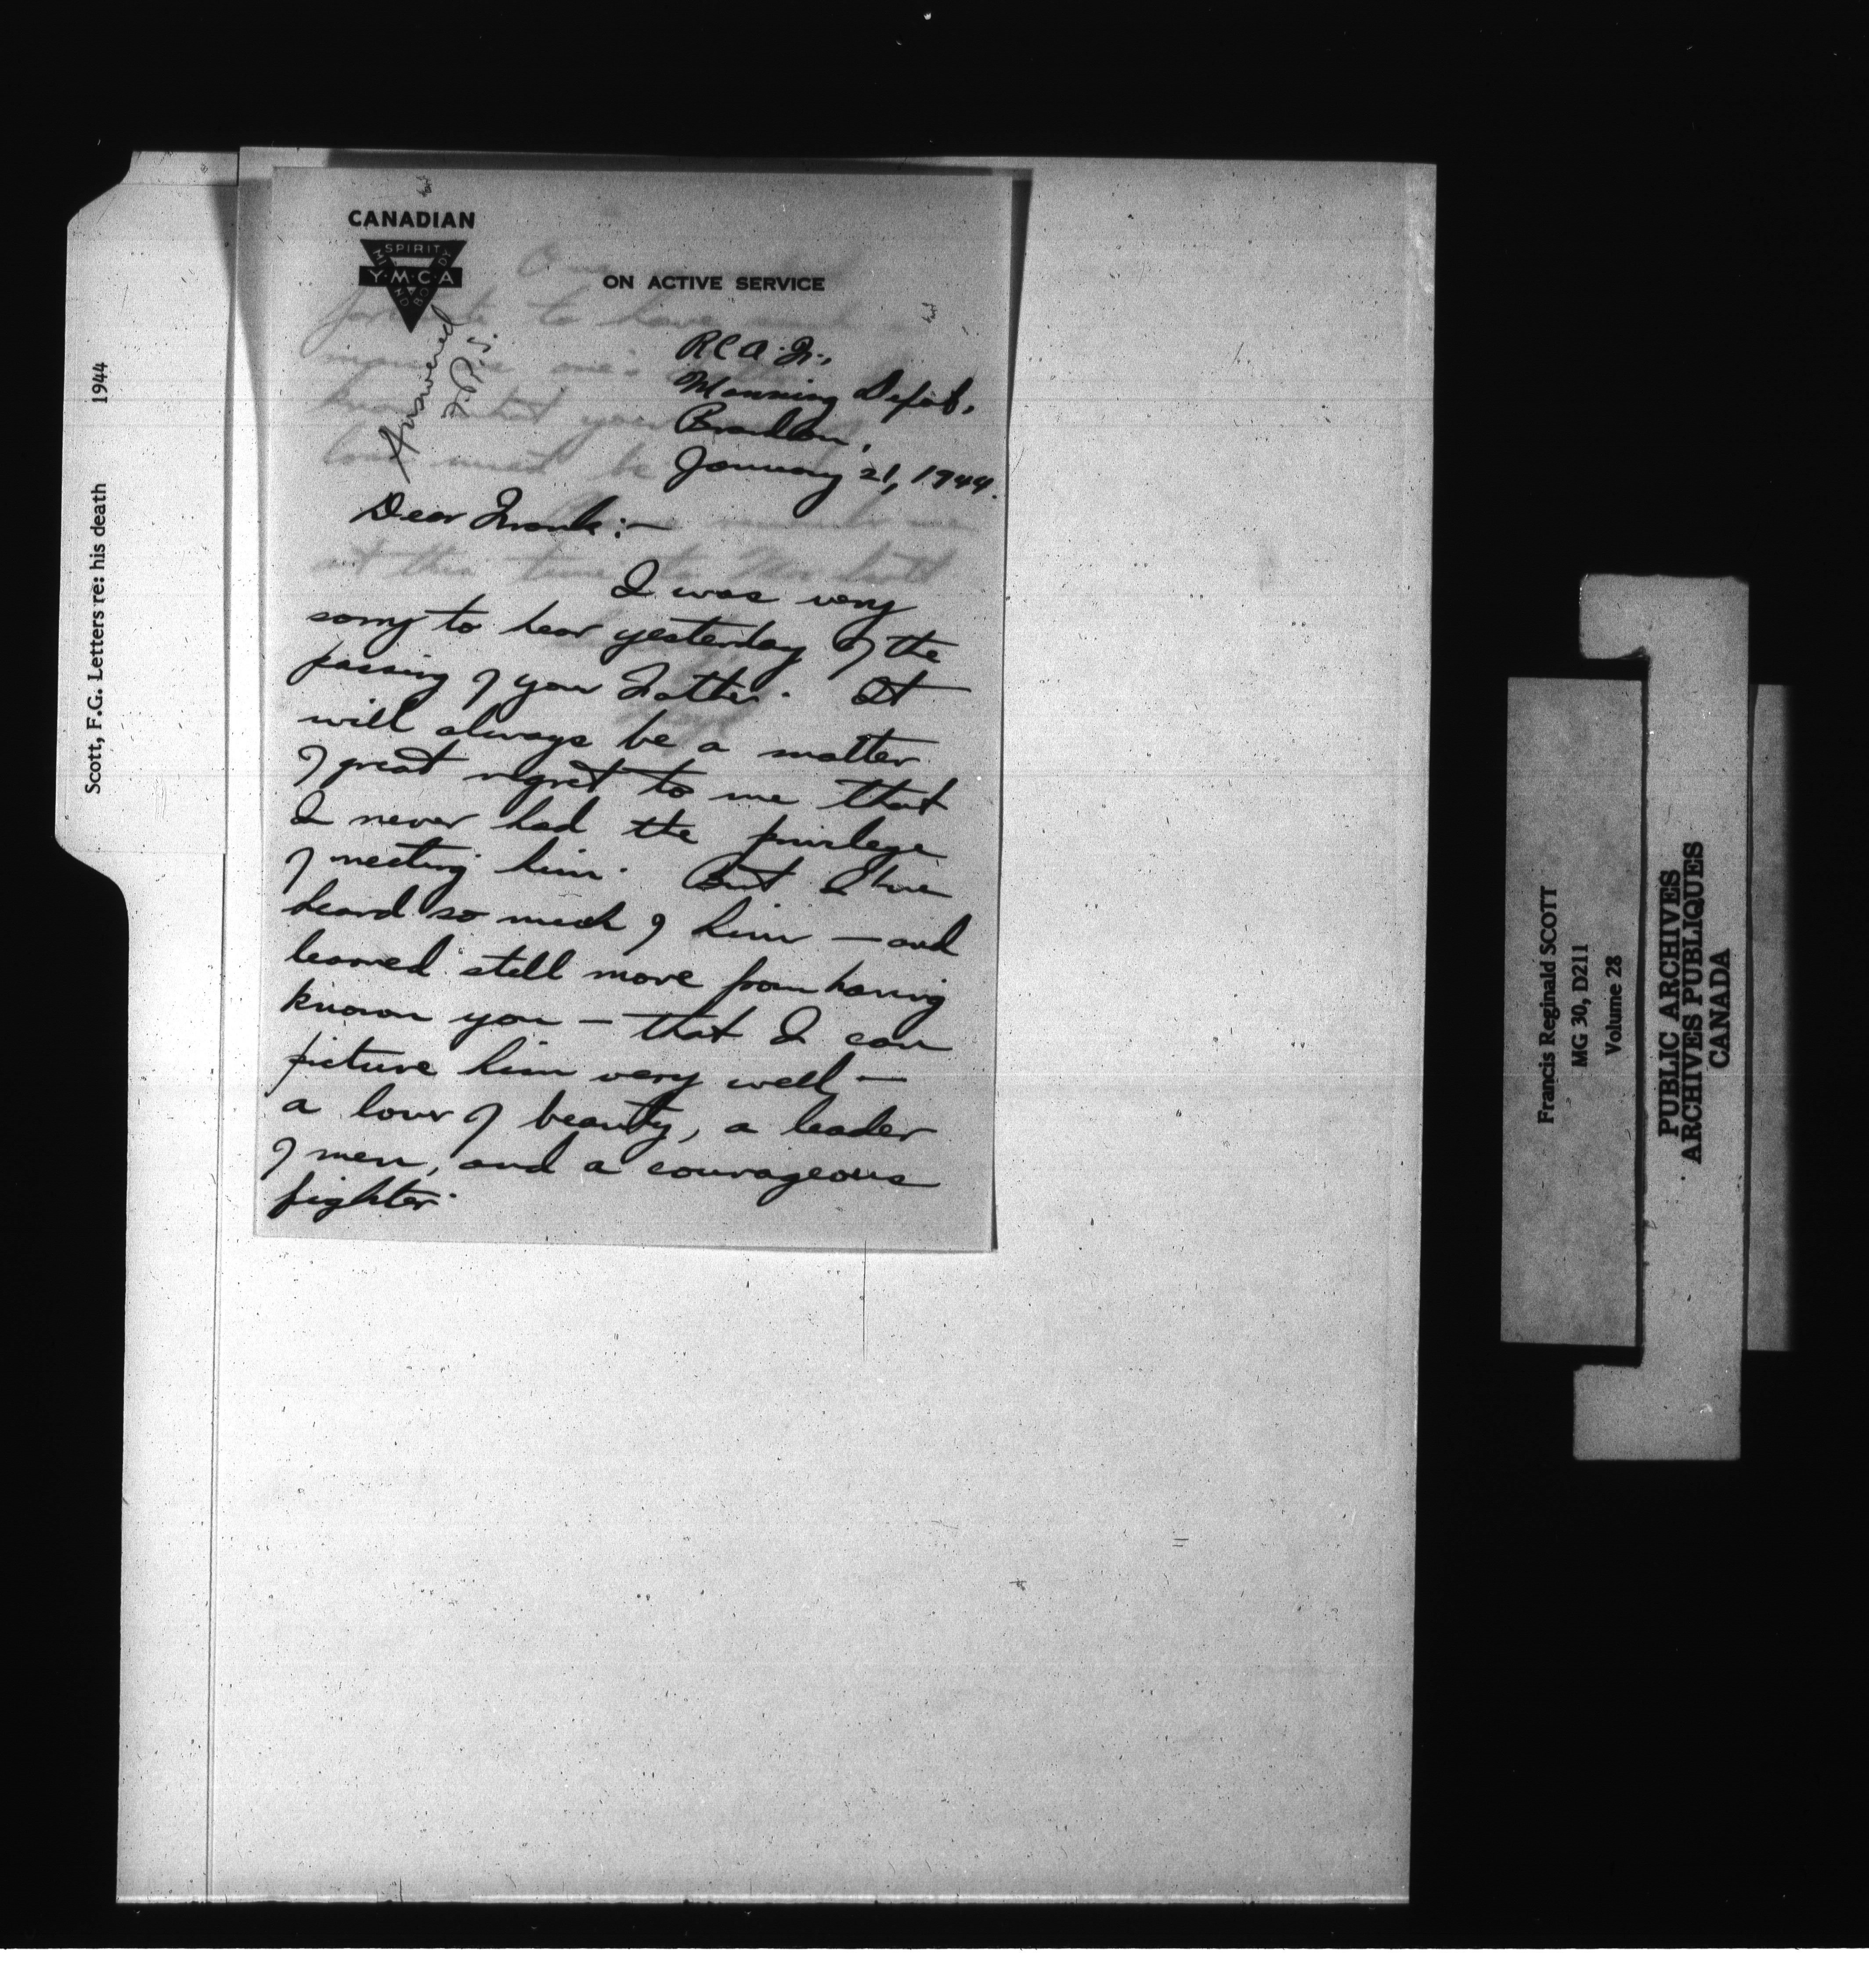 Scott, F.G. Letters re: his death 1944
CANADIAN
SPIRIT
MIND
BODY
Y·M·C·A
ON ACTIVE SERVICE
Answered
F.R.S.
Manning Depot,
Brandon,
January 21, 1944.
Dear Frank:-
I was very
sorry to hear yesterday of the
passing of your Father. It
will always be a matter
of great regret to me that
I never had the privilege
of meeting him. But I have
heard so much of him — and
learned still more from having
known you — that I can
picture him very well —
a lover of beauty, a leader
of men, and a courageous
fighter.
Francis Reginald SCOTT
MG 30, D211
Volume 28
PUBLIC ARCHIVES
ARCHIVES PUBLIQUES
CANADA